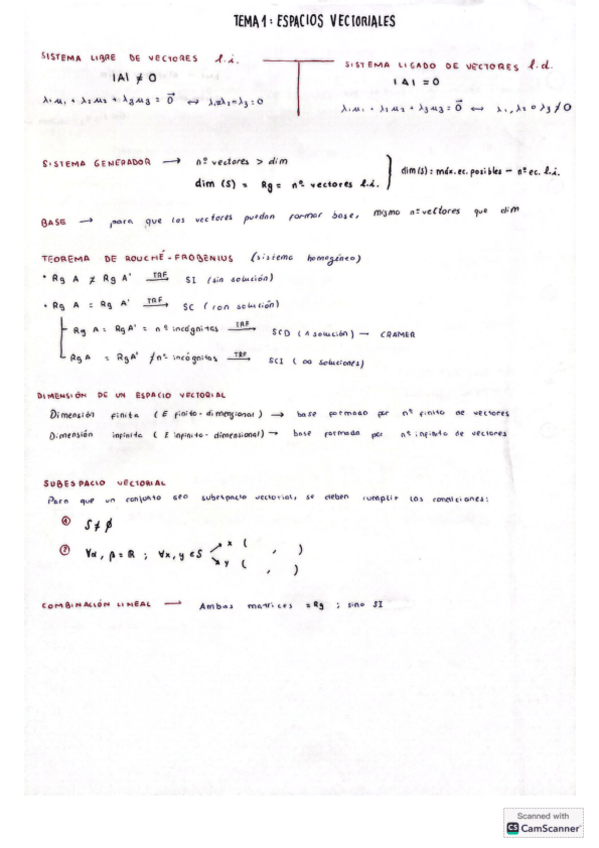 TEMA 1: ESPACIOS VECTORIALES
SISTEMA LIBRE DE VECTORES l.i.
|A| ≠ 0
λ₁u₁ + λ₂u₂ + λ₃u₃ = 0⃗ ⟷ λ₁λ₂λ₃=0
SISTEMA LIGADO DE VECTORES l.d.
|A| = 0
λ₁u₁ + λ₂u₂ + λ₃u₃ = 0⃗ ⟷ λ₁, λ₂ o λ₃ ≠ 0
SISTEMA GENERADOR → nº vectores > dim
dim (S) = Rg = nº vectores l.i.
dim(S): máx.ec. posibles - nº ec. l.i.
BASE → para que los vectores puedan formar base, mismo nº vectores que dim
TEOREMA DE ROUCHÉ-FROBENIUS (sistema homogéneo)
• Rg A ≠ Rg A' TRF→ SI (sin solución)
• Rg A = Rg A' TRF→ SC (con solución)
Rg A = Rg A' = nº incógnitas TRF→ SCD (1 solución) → CRAMER
Rg A = Rg A' ≠ nº incógnitas TRF→ SCI (∞ soluciones)
DIMENSIÓN DE UN ESPACIO VECTORIAL
Dimensión finita (E finito-dimensional) → base formada por nº finito de vectores
Dimensión infinita (E infinito-dimensional) → base formada por nº infinito de vectores
SUBESPACIO VECTORIAL
Para que un conjunto sea subespacio vectorial, se deben cumplir las condiciones:
① S ≠ ∅
② ∀α, β = ℝ ; ∀x, y ∈ S x ( , )
y ( , )
COMBINACIÓN LINEAL → Ambas matrices = Rg ; sino SI
Scanned with
CS CamScanner